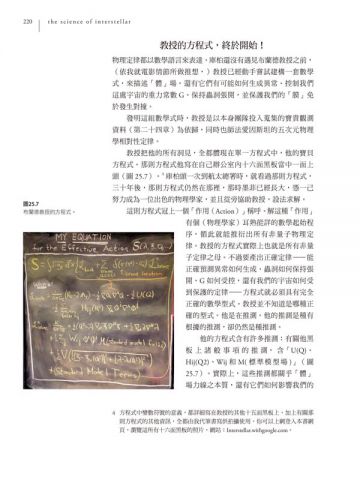 220 the science of interstellar
教授的方程式，終於開始！
物理定律都以數學語言來表達。庫柏還沒有遇見布蘭德教授之前，
（依我就電影情節所做推想，）教授已經動手嘗試建構一套數學
式，來描述「體」場、還有它們有可能如何生成異常、控制我們
這處宇宙的重力常數 G、保持蟲洞張開，並保護我們的「膜」免
於發生對撞。
發明這組數學式時，教授是以本身團隊投入蒐集的寶貴觀測
資料（第二十四章）為依歸，同時也師法愛因斯坦的五次元物理
學相對性定律。
教授把他的所有洞見，全都體現在單一方程式中，他的寶貝
方程式，那則方程式他寫在自己辦公室內十六面黑板當中一面上
頭（圖 25.7）。4 庫柏頭一次到航太總署時，就看過那則方程式，
三十年後，那則方程式仍然在那裡，那時墨菲已經長大，憑一己
努力成為一位出色的物理學家，並且從旁協助教授，設法求解。
這則方程式冠上一個「作用（Action）」稱呼，解這種「作用」
圖25.7
布蘭德教授的方程式。
MY EQUATION
for the Effective Action,
有個（物理學家）耳熟能詳的數學起始程
序，循此就能推衍出所有非量子物理定
律。教授的方程式實際上也就是所有非量
子定律之母。不過要產出正確定律——能
正確推測異常如何生成、蟲洞如何保持張
開、G 如何受控，還有我們的宇宙如何受
到保護的定律——方程式就必須具有完全
正確的數學型式。教授並不知道是哪種正
確的型式。他是在推測。他的推測是種有
根據的推測，卻仍然是種推測。
他的方程式含有許多推測：有關他黑
板上諸般事項的推測，含「U(Q)、
Hij(Q2)、Wij 和 M( 標準模型場 )」（圖
25.7）。實際上，這些推測都關乎「體」
場力線之本質，還有它們如何影響我們的
4 方程式中變數符號的意義，都詳細寫在教授的其他十五面黑板上。加上有關那
則方程式的其他資訊，全都由我代筆書寫供拍攝使用，你可以上網登入本書網
頁，瀏覽這所有十六面黑板的照片，網站：Interstellar.withgoogle.com。